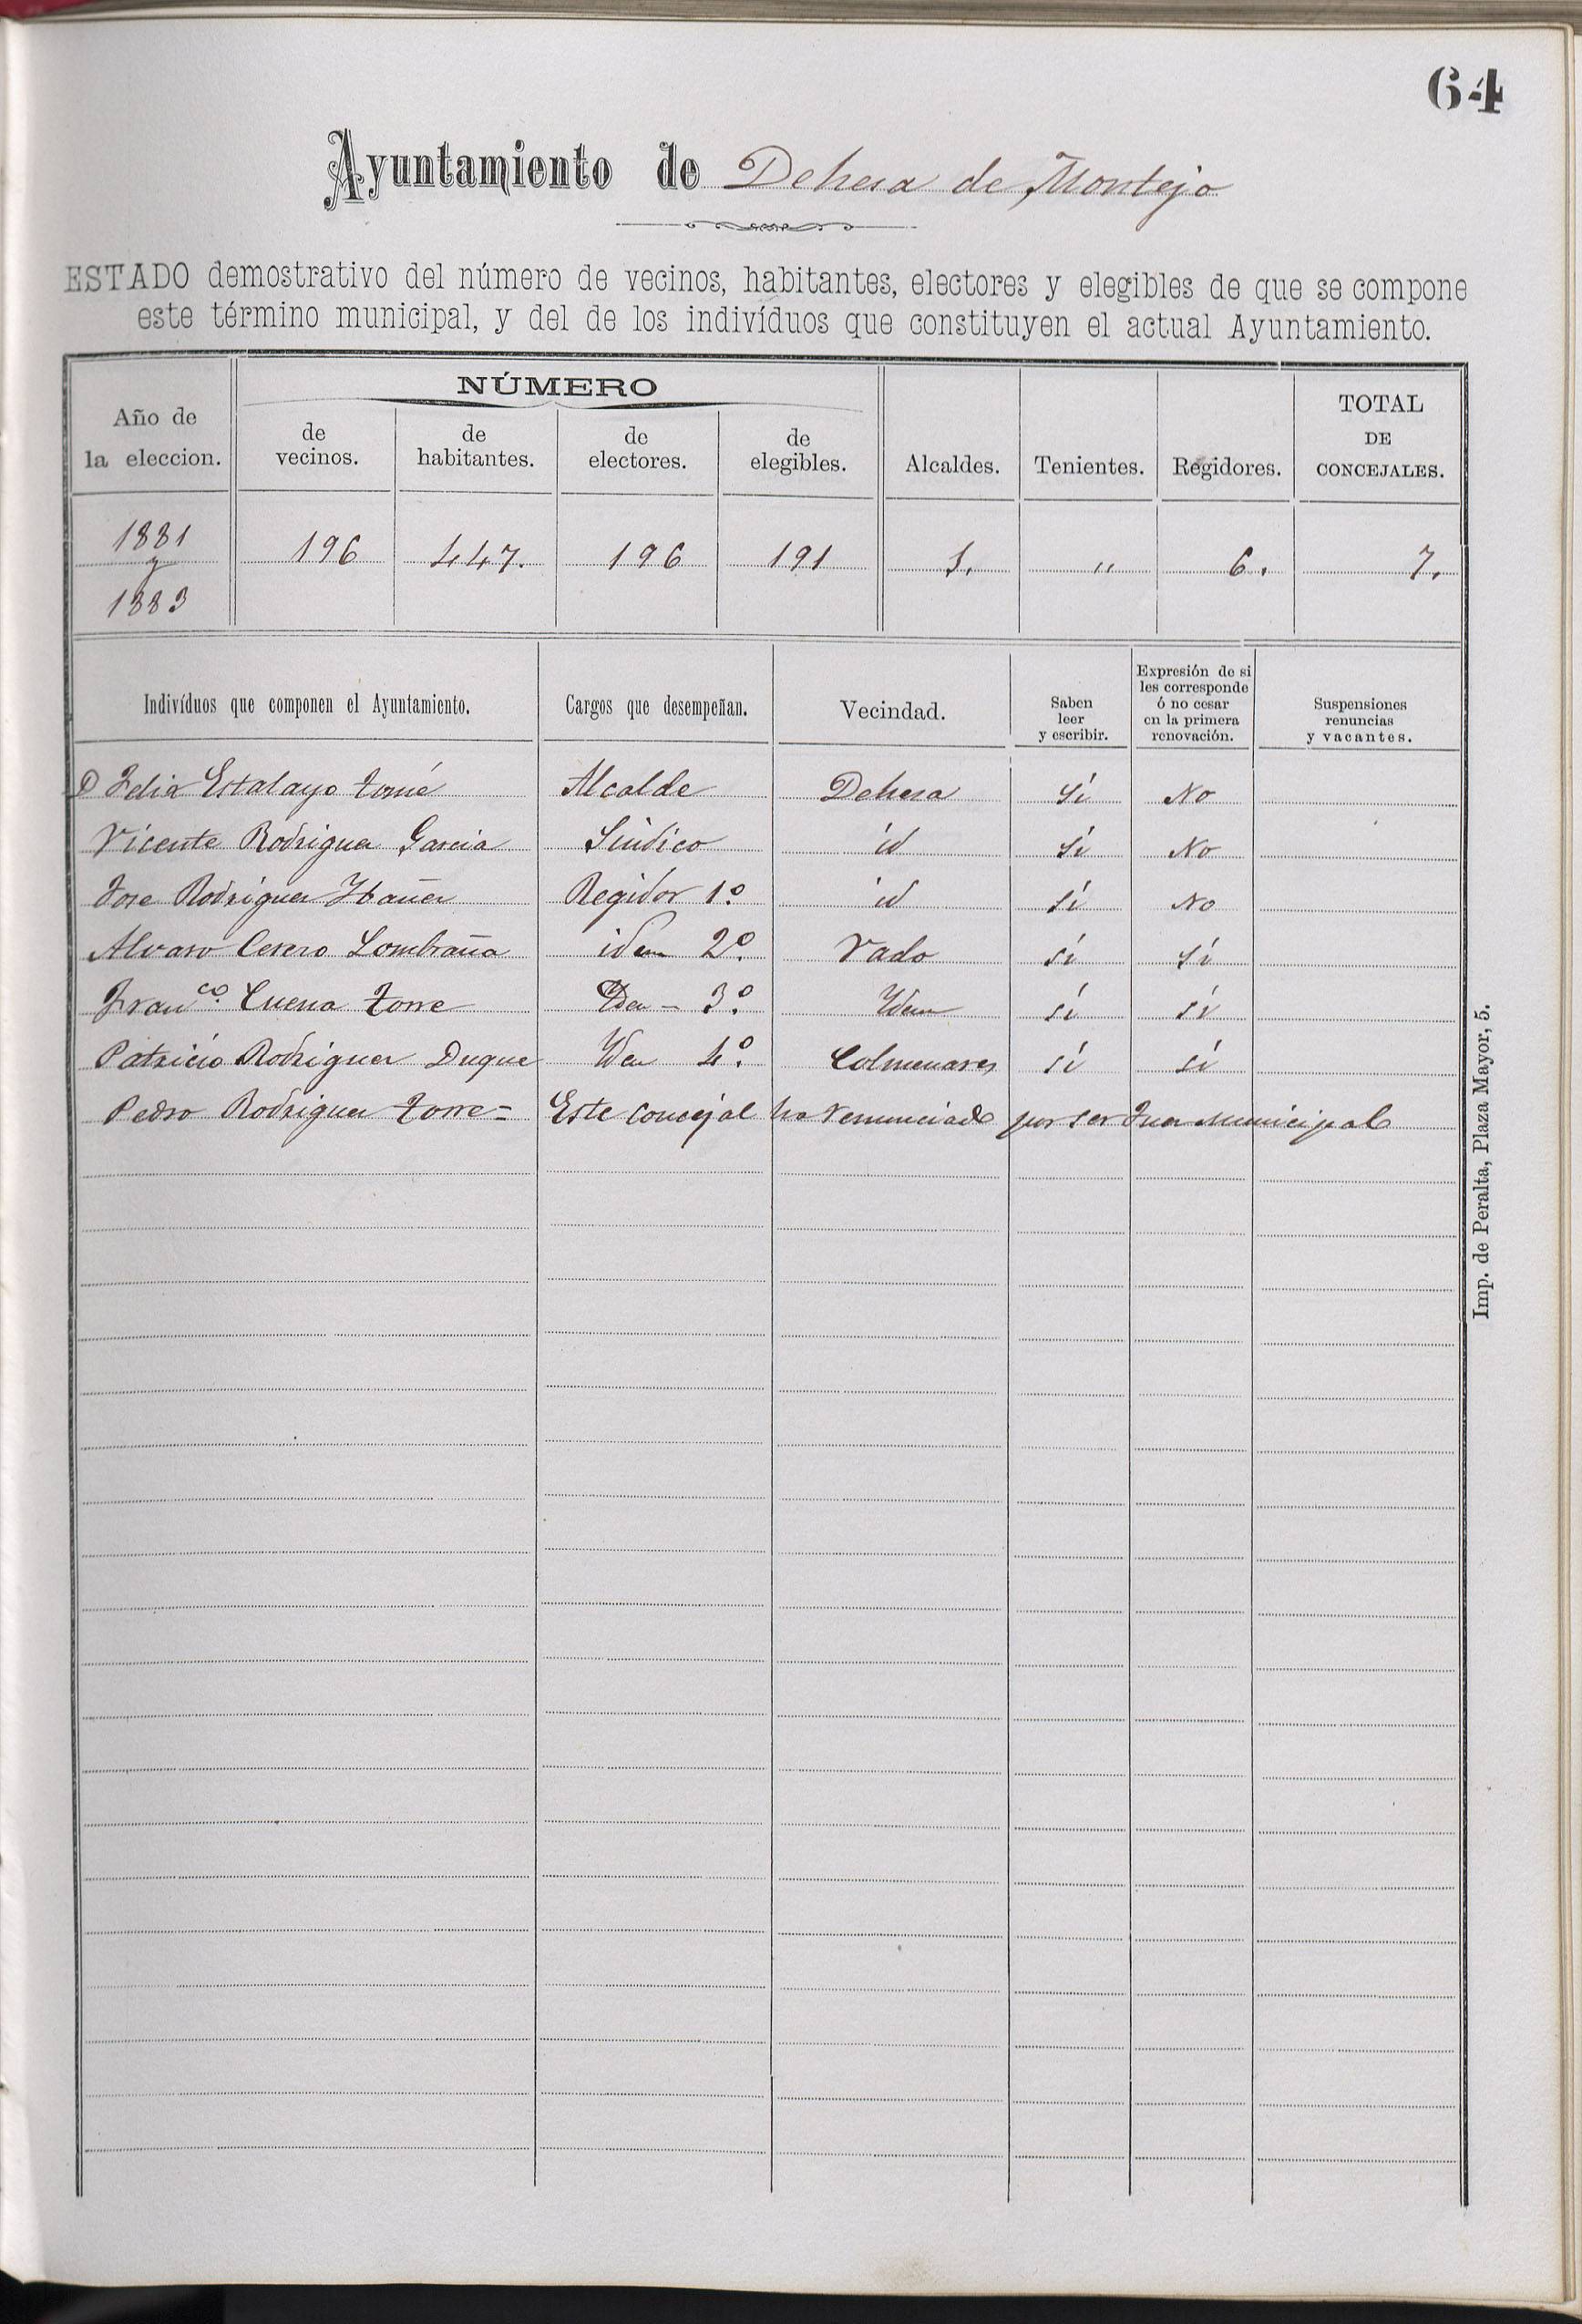 64
Ayuntamiento de Dehesa de Montejo
ESTADO demostrativo del número de vecinos, habitantes, electores y elegibles de que se compone
este término municipal, y del de los indivíduos que constituyen el actual Ayuntamiento.
Año de la eleccion. NÚMERO de vecinos. de habitantes. de electores. de elegibles. Alcaldes. Tenientes. Regidores. TOTAL DE CONCEJALES.
1881 y 1883 196 447. 196 191 1. " 6. 7.
Indivíduos que componen el Ayuntamiento. Cargos que desempeñan. Vecindad. Saben leer y escribir. Expresión de si les corresponde ó no cesar en la primera renovación. Suspensiones renuncias y vacantes.
D Felix Estalayo Tomé Alcalde Dehesa Sí No
Vicente Rodriguez Garcia Sindico id Sí No
Jose Rodriguez Ibañez Regidor 1º id Sí No
Alvaro Cerezo Lombraña idem 2º Vado sí sí
Franco. Cuena Torre Idem 3º Idem sí sí
Patricio Rodriguez Duque Idem 4º Colmenares sí sí
Pedro Rodriguez Torre = Este concejal ha renunciado por ser Juez Municipal
Imp. de Peralta, Plaza Mayor, 5.